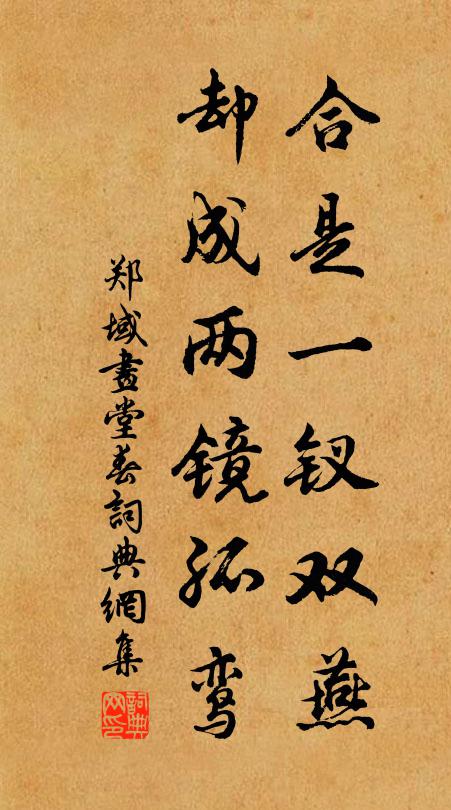 合是一钗双燕
却成两镜孤鸾
郑域画堂春詞典網集
詞典网印